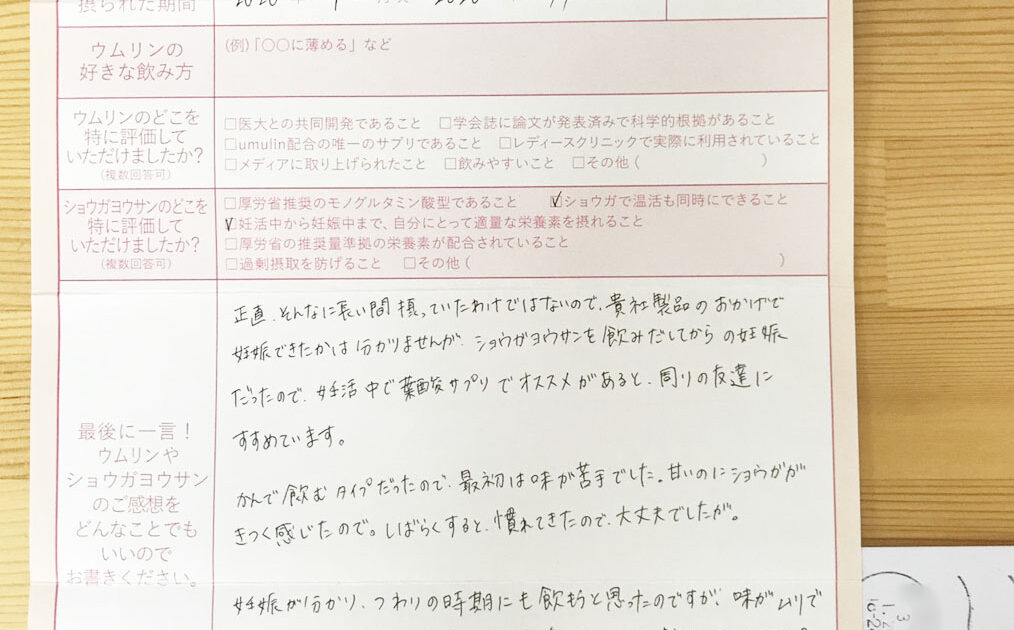 摂られた期間
ウムリンの
好きな飲み方
(例)「〇〇に薄める」など
ウムリンのどこを
特に評価して
いただけましたか?
(複数回答可)
□医大との共同開発であること □学会誌に論文が発表済みで科学的根拠があること
□umulin配合の唯一のサプリであること □レディースクリニックで実際に利用されていること
□メディアに取り上げられたこと □飲みやすいこと □その他( )
ショウガヨウサンのどこを
特に評価して
いただけましたか?
(複数回答可)
□厚労省推奨のモノグルタミン酸型であること ☑ショウガで温活も同時にできること
☑妊活中から妊娠中まで、自分にとって適量な栄養素を摂れること
□厚労省の推奨量準拠の栄養素が配合されていること
□過剰摂取を防げること □その他( )
最後に一言!
ウムリンや
ショウガヨウサン
のご感想を
どんなことでも
いいので
お書きください。
正直、そんなに長い間摂っていたわけではないので、貴社製品のおかげで
妊娠できたかは分かりませんが、ショウガヨウサンを飲みだしてからの妊娠
だったので、妊活中で葉酸サプリでオススメがあると、周りの友達に
すすめています。
かんで飲むタイプだったので、最初は味が苦手でした。甘いのにショウガが
きつく感じたので。しばらくすると、慣れてきたので、大丈夫でしたが。
妊娠が分かり、つわりの時期にも飲もうと思ったのですが、味がムリで